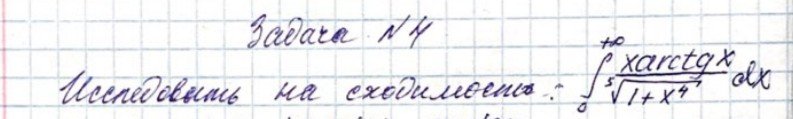 Задача №4
Исследовать на сходимость: ∫₀^{+∞} \frac{x arctg x}{\sqrt[5]{1+x^4}} dx